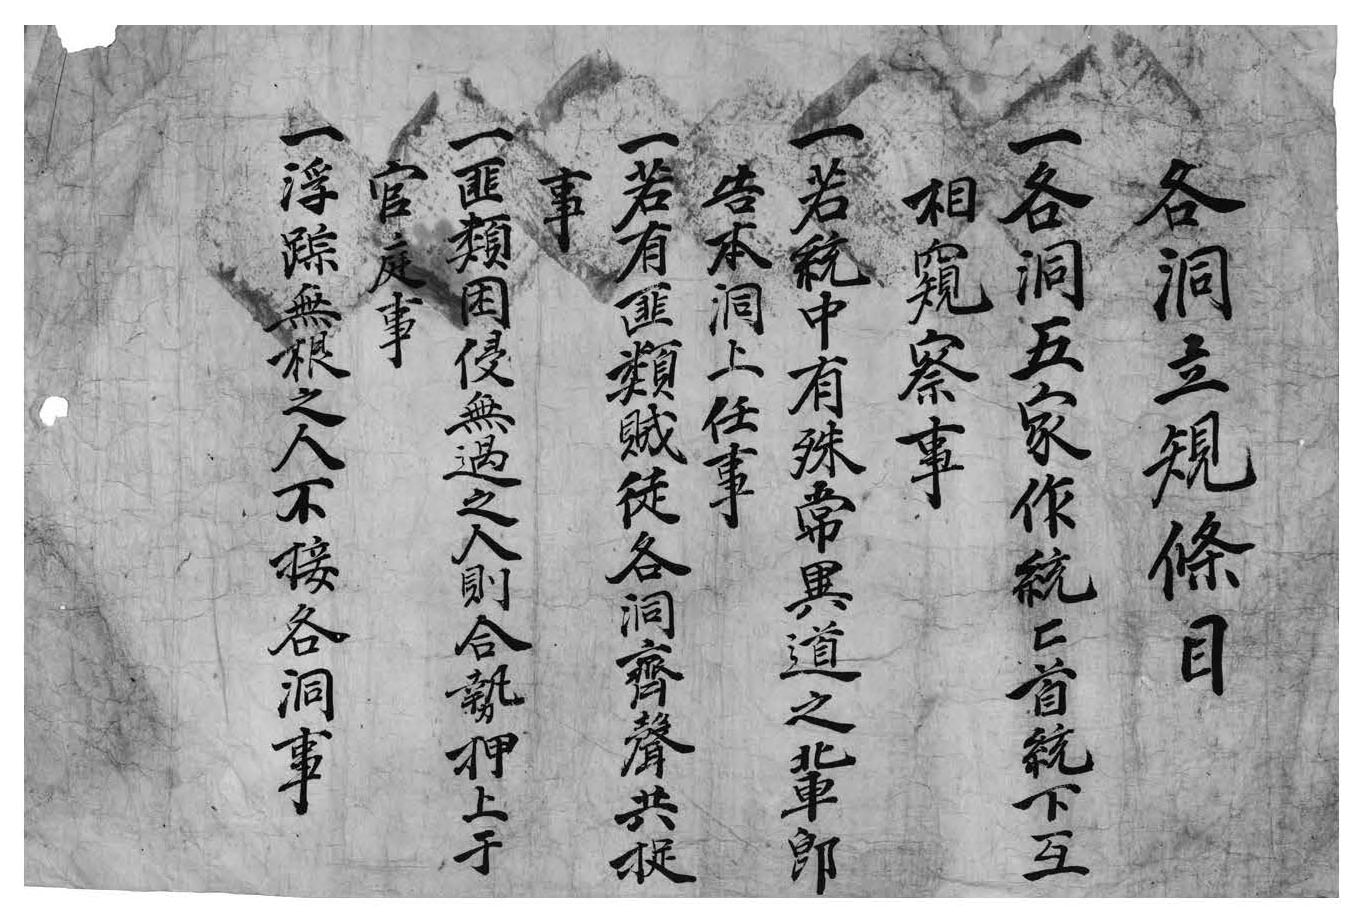 各洞立規條目
一各洞五家作統〻首統下互
相窺察事
一若統中有殊常異道之輩卽
告本洞上任事
一若有匪類賊徒各洞齊聲共捉
事
一匪類困侵無過之人則合勢押上于
官庭事
一浮踪無根之人不接各洞事